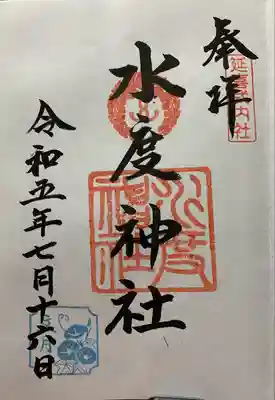 奉拝
延喜式内社
水度神社
水度神社
令和五年七月十六日